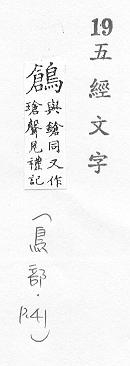 19 五經文字
鶬 與鎗同又作
瑲聲見禮記
(鳥部·P.41)